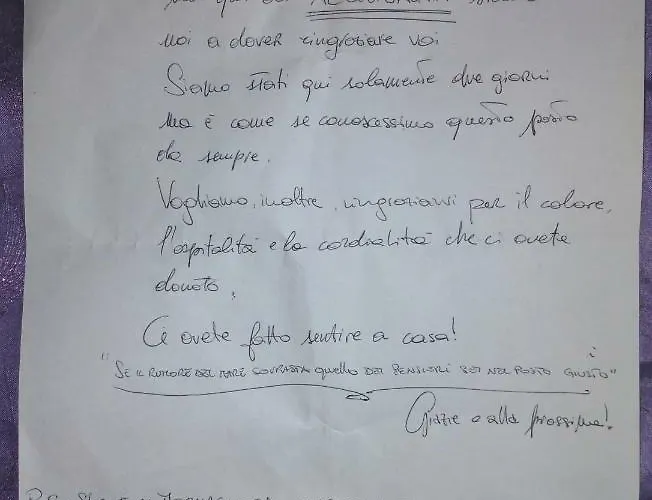 noi a dover ringraziare voi
Siamo stati qui solamente due giorni
ma è come se conoscessimo questo posto
da sempre.
Vogliamo, inoltre, ringraziarvi per il calore,
l'ospitalità e la cordialità che ci avete
donato.
Ci avete fatto sentire a casa!
"SE IL RUMORE DEL MARE SOVRASTA quello DEI PENSIERI SEI NEL POSTO GIUSTO"
Grazie e alla prossima!